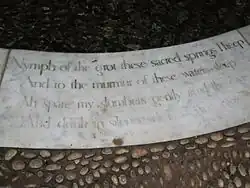 Nymph of the grot these sacred springs I keep
And to the murmur of these waters sleep
Ah spare my slumbers gently tread the
drink in silence